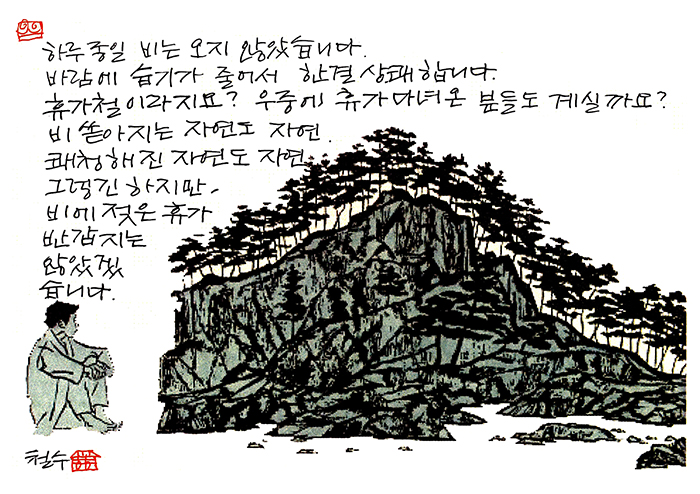 하루종일 비는 오지 않았습니다.
바람에 습기가 줄어서 한결 상쾌합니다.
휴가철이라지요? 우중에 휴가 다녀온 분들도 계실까요?
비 쏟아지는 자연도 자연.
쾌청해진 자연도 자연.
그렇긴 하지만.
비에 젖은 휴가
반갑지는
않았겠
습니다.
철수